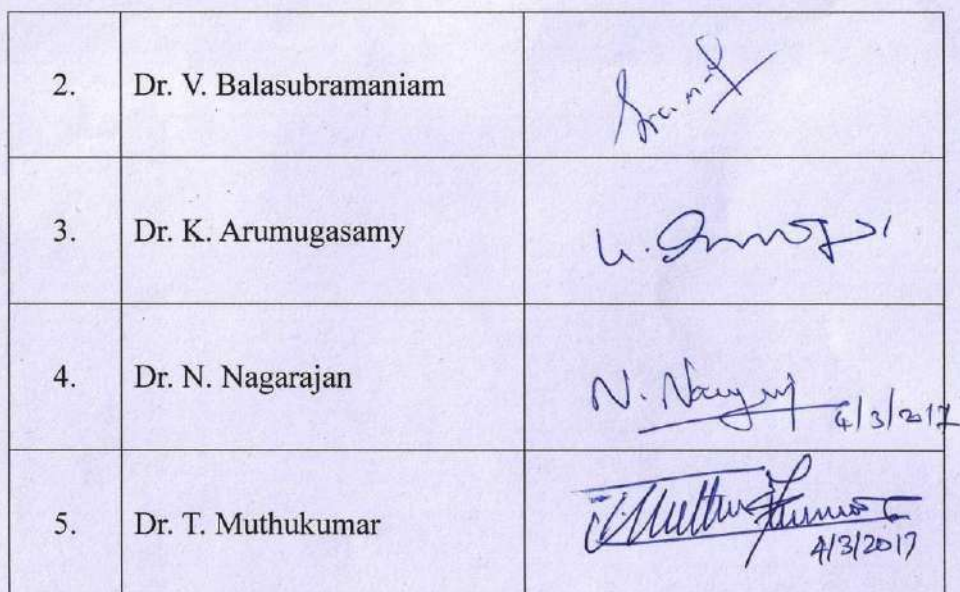 2. Dr. V. Balasubramaniam
3. Dr. K. Arumugasamy
4. Dr. N. Nagarajan N. 4/3/2017
5. Dr. T. Muthukumar T. Muthukumar
4/3/2017